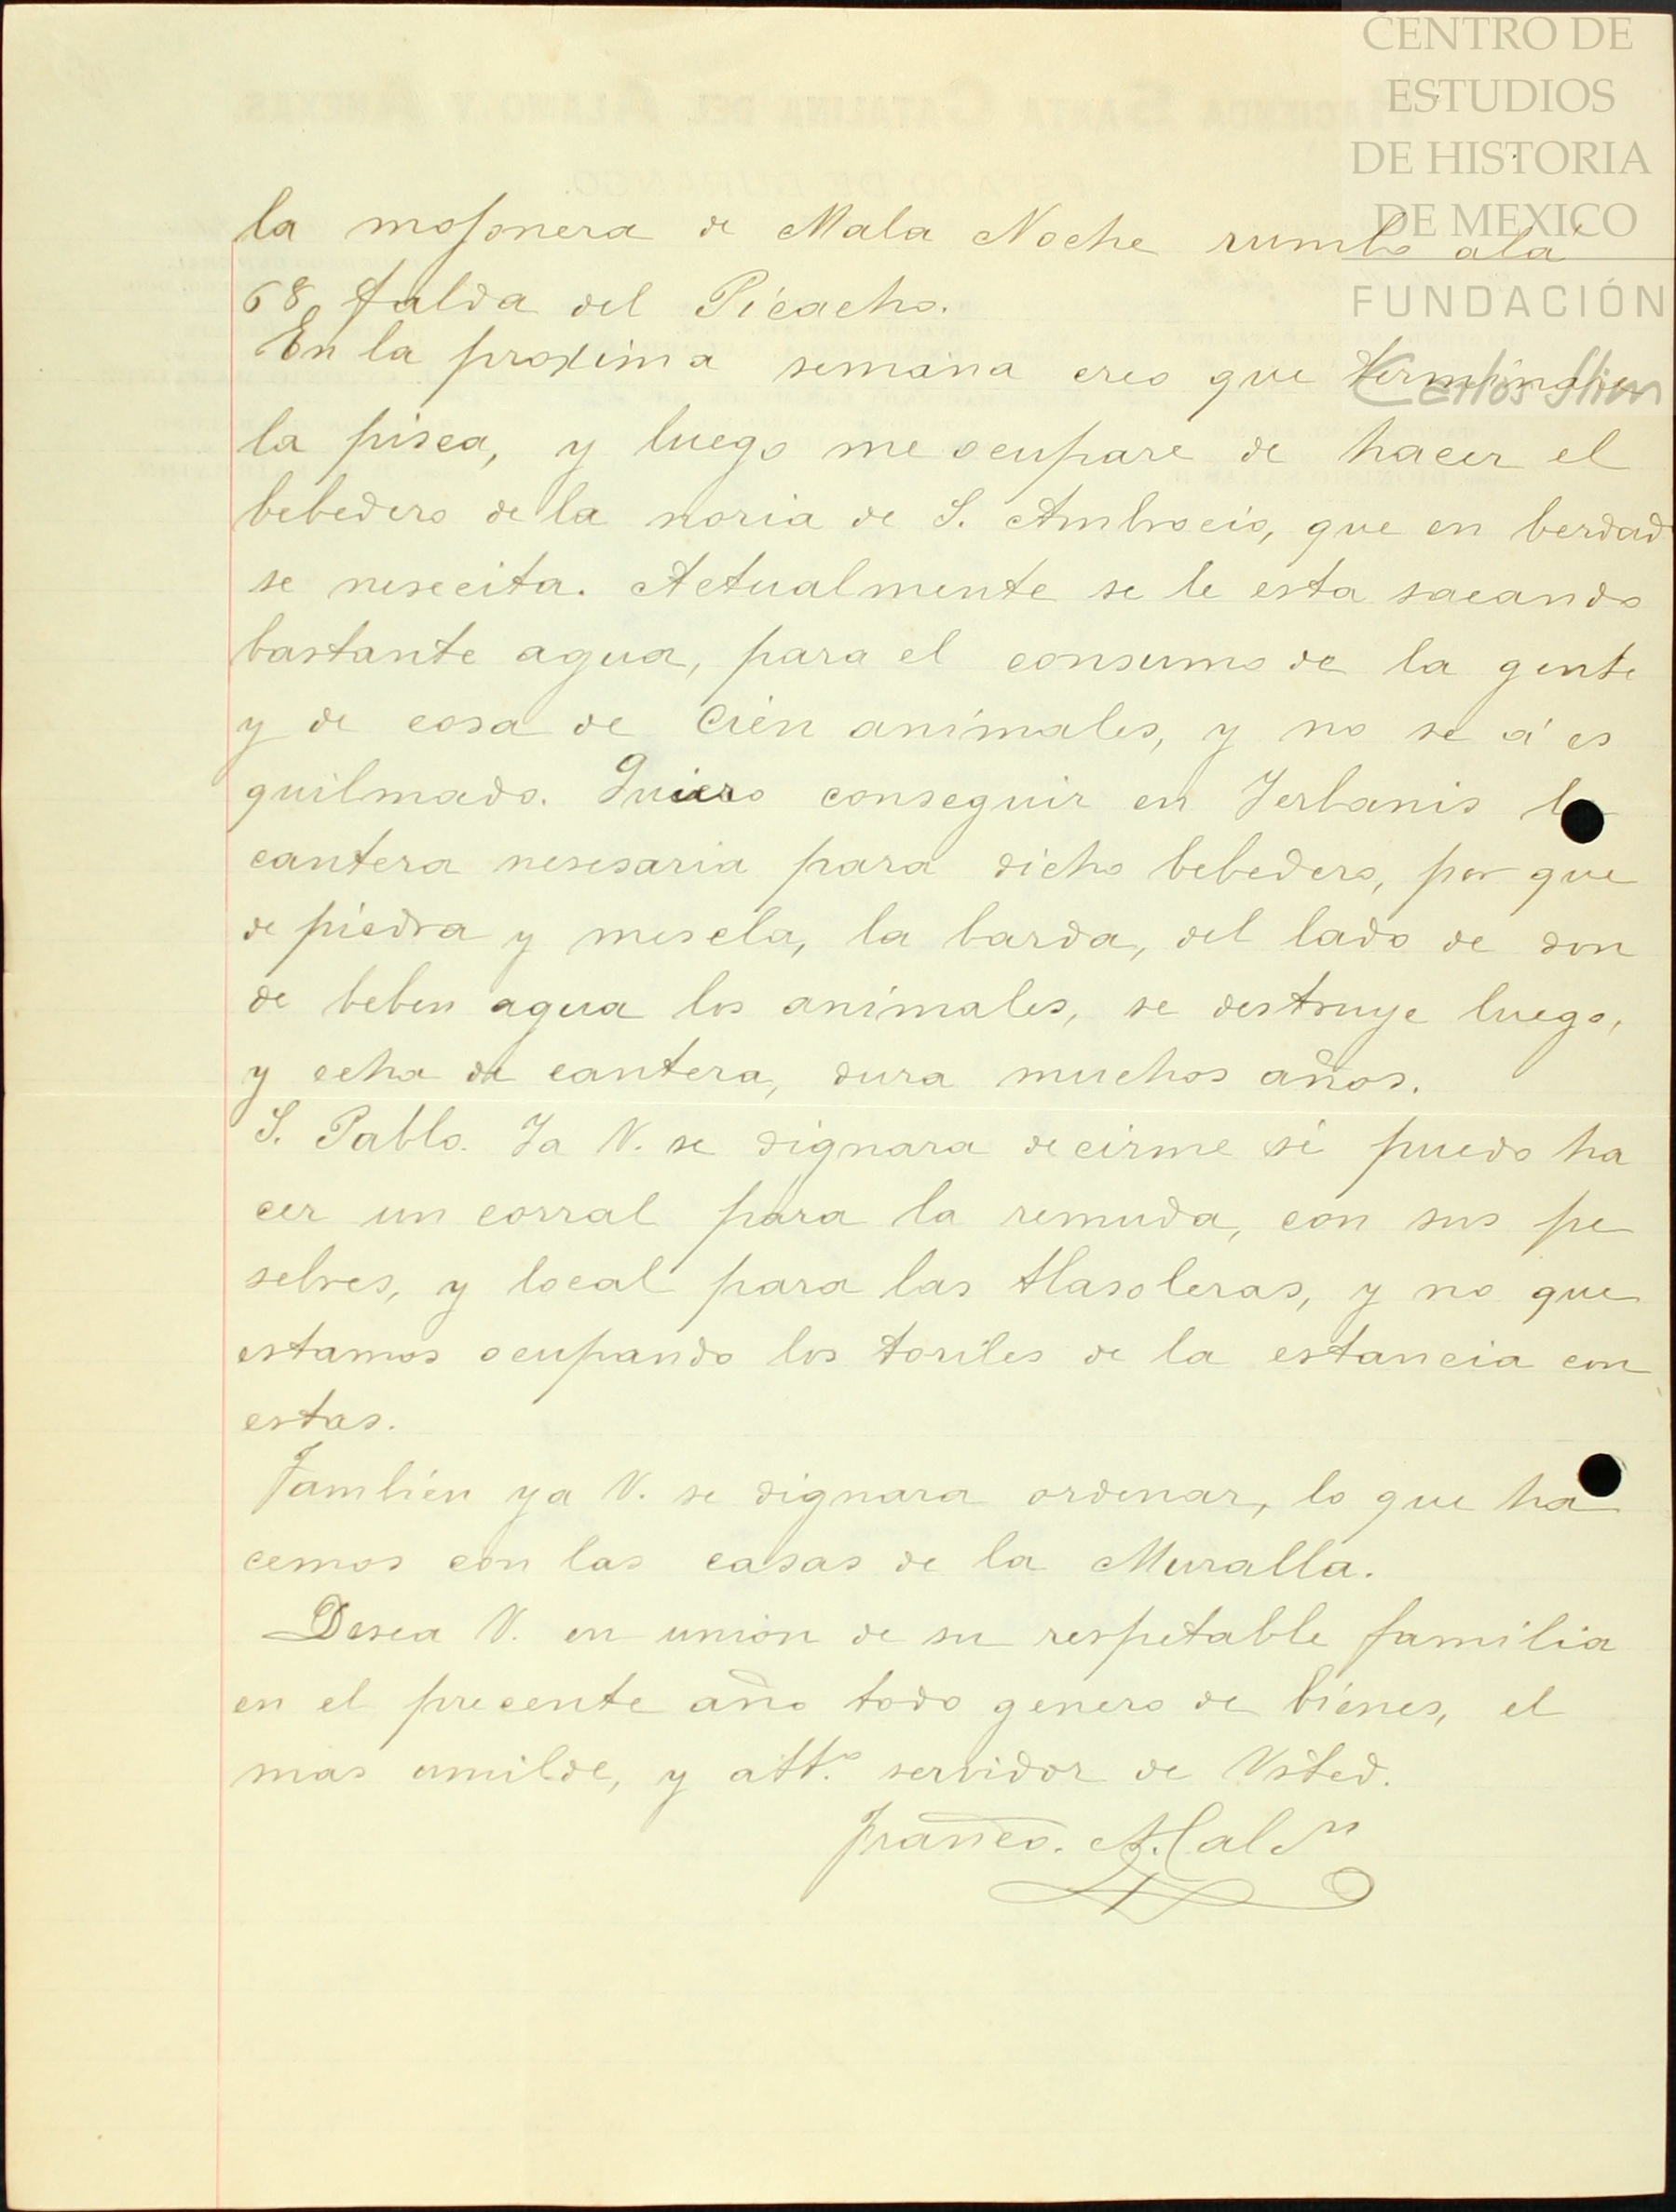 CENTRO DE
ESTUDIOS
DE HISTORIA
DE MEXICO
FUNDACIÓN
Carlos Slim
la mojonera de Mala Noche rumbo a la
68, falda del Picacho.
En la proxima semana creo que terminare
la pisca, y luego me ocupare de hacer el
bebedero de la noria de S. Ambrocio, que en berdad
se nesecita. Actualmente se le esta sacando
bastante agua, para el consumo de la gente
y de cosa de Cien animales, y no se á es
quilmado. Quiero conseguir en Yerbanis la
cantera nesesaria para dicho bebedero, por que
de piedra y mescla, la barda, del lado de don
de beben agua los animales, se destruye luego,
y echa de cantera, dura muchos años.
S. Pablo. Ya V. se dignara decirme si puedo ha
cer un corral para la remuda, con sus pe
sebres, y local para las tlasoleras, y no que
estamos ocupando los toriles de la estancia con
estas.
Tambien ya V. se dignara ordenar, lo que ha
cemos con las casas de la Muralla.
Desea V. en union de su respetable familia
en el precente año todo genero de bienes, el
mas umilde, y att.º servidor de Usted.
Franco.